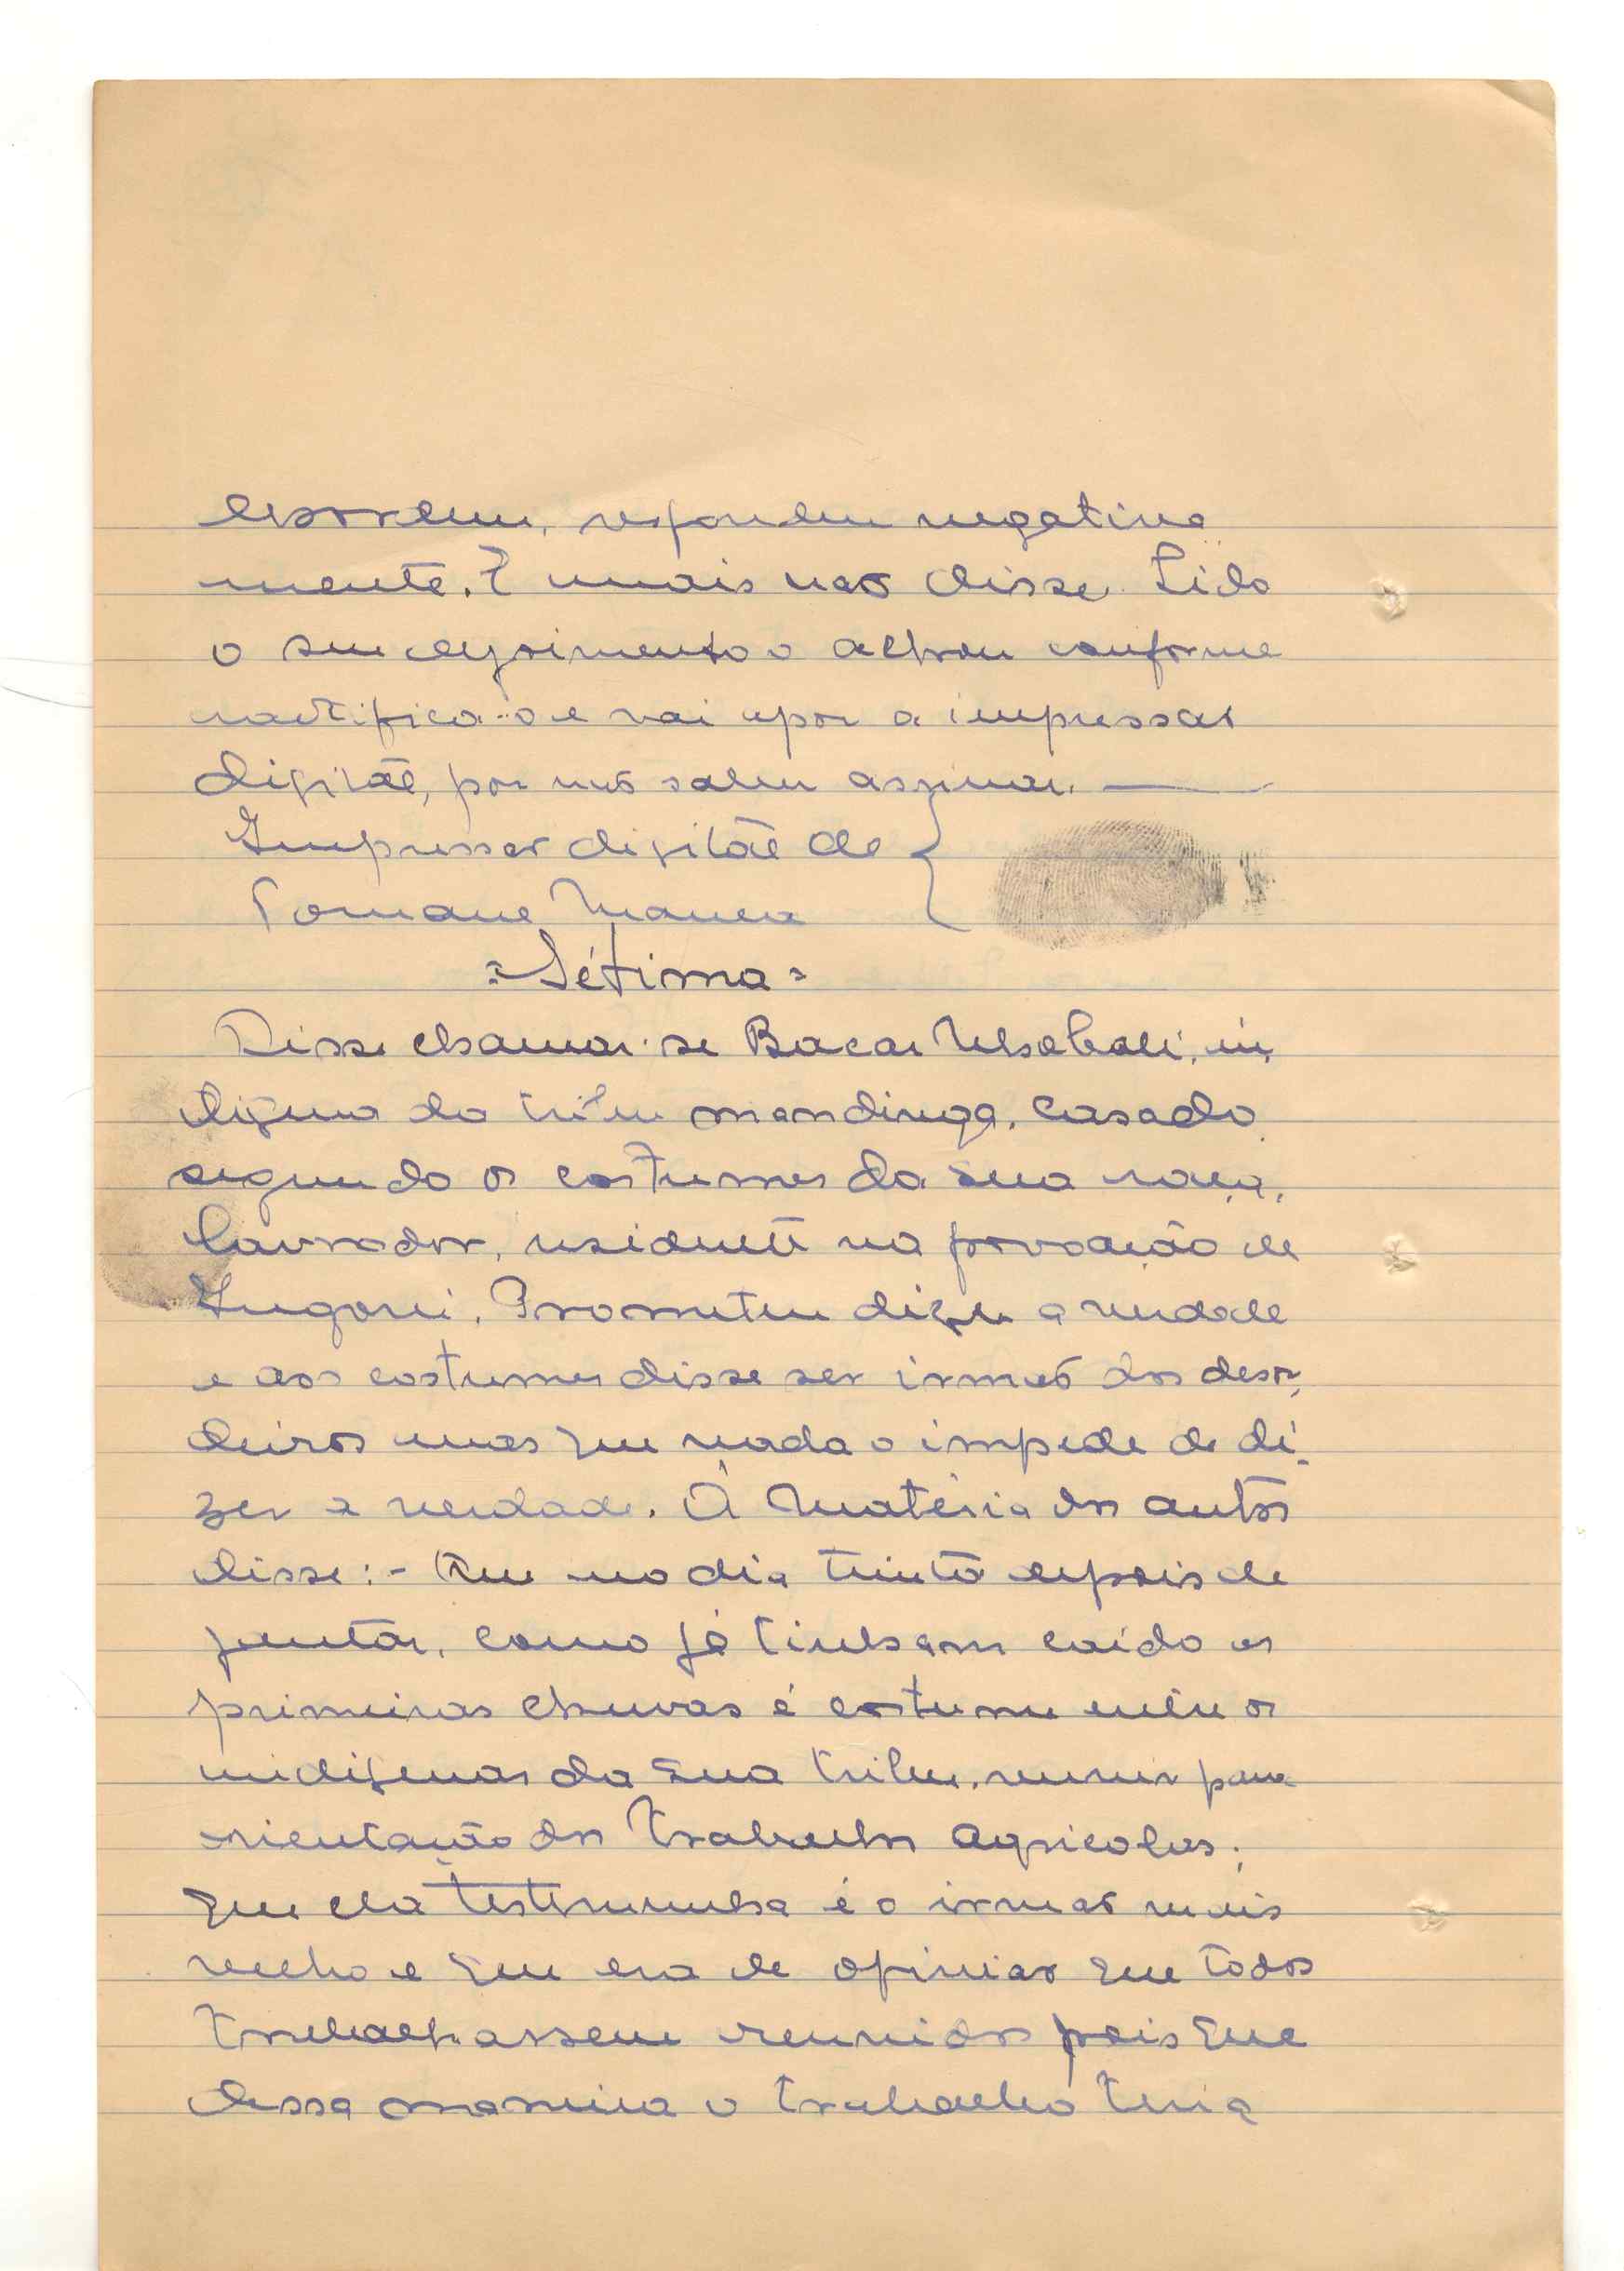 desordem, respondeu negativa
mente. E mais não disse. Lido
o seu depoimento o achou conforme
ractifica-o e vai apor a impressão
digital, por não saber assinar. —
Impressão digital de
Tomane Mané
=Sétima=
Disse chamar-se Bacar in
digena da tribu mandinga, casado
segundo os costumes da sua raça,
lavrador, residente na povoação de
Prometeu dizer a verdade
e aos costumes disse ser irmão dos desor
deiros mas que nada o impede de di-
zer a verdade. À Matéria dos autos
disse:- Que no dia trinta depois de
jantar, como já tinham caído as
primeiras chuvas é costume entre os
indigenas da sua tribu, reunir para
orientação dos trabalhos agricolas;
Que ela testemunha é o irmão mais
velho e que era de opinião que todos
trabalhassem reunidos pois que
dessa maneira o trabalho teria